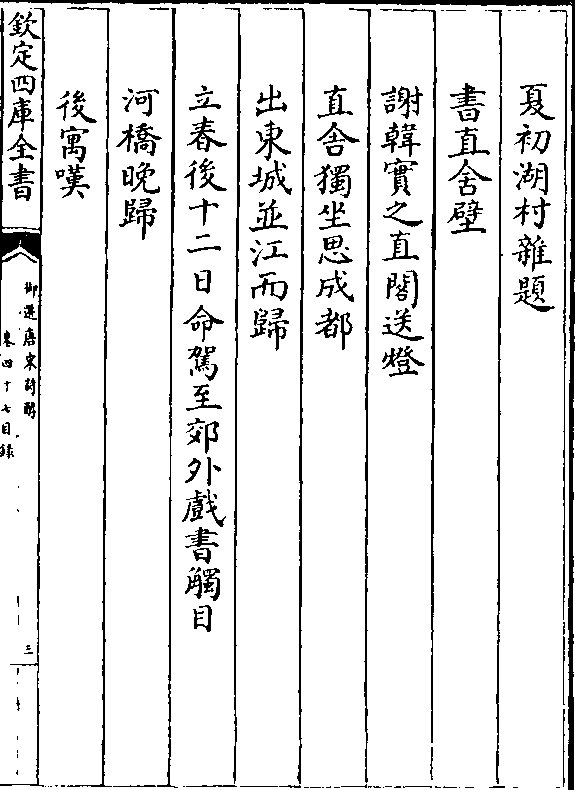 夏初湖村雜題
書直舍壁
謝韓實之直閣送燈
直舍獨坐思成都
出東城並江而歸
立春後十二日命駕至郊外戲書觸目
河橋晚歸
後寓嘆
欽定四庫全書
御選唐宋詩醇
卷四十七目錄
三